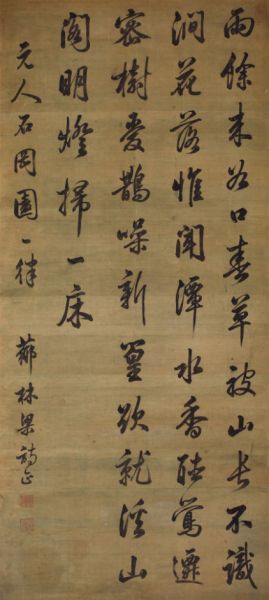 雨餘來谷口春草被山長不識
澗花落惟聞潭水香鶯遷
密樹鵲噪新篁欲就溪山
閣明燈掃一床
元人石岡園一律 薌林梁詩正